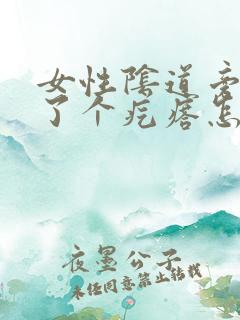 女性陰道旁
了个疙瘩怎
夜墨公子
未经同意禁止转载